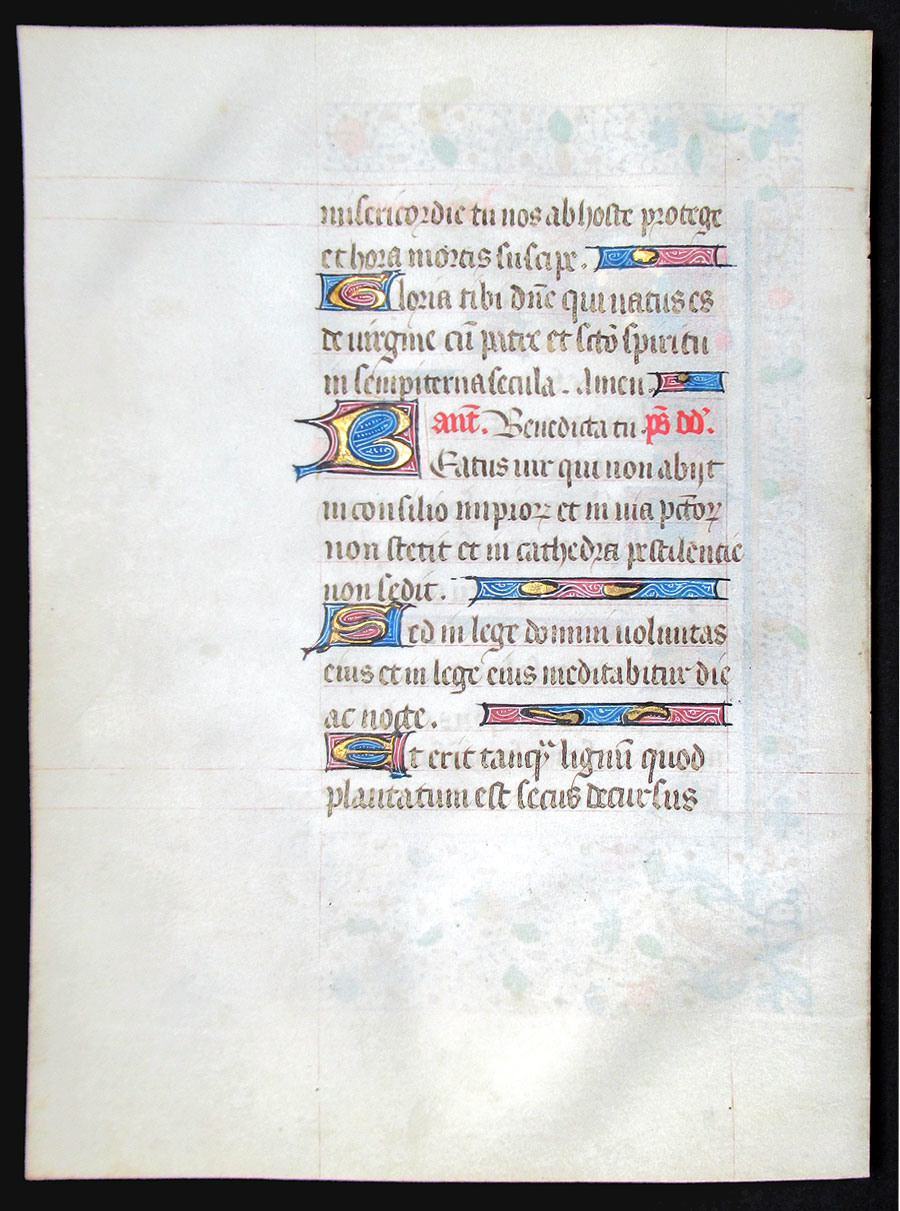 misericordie tu nos ab hoste protege
et hora mortis suscipe.
Gloria tibi dn̄e qui natus es
de uirgine cū patre et sctō spiritu
in sempiterna secula. Amen
ant̄. Benedicta tu p̄s dd̄.
Beatus uir qui non abijt
in consilio impioꝝ et in uia pctōꝝ
non stetit et in cathedra pestilencie
non sedit.
Sed in lege domini uoluntas
eius et in lege eius meditabitur die
ac nocte.
Et erit tanqᷓ lignū quod
plantatum est secus decursus